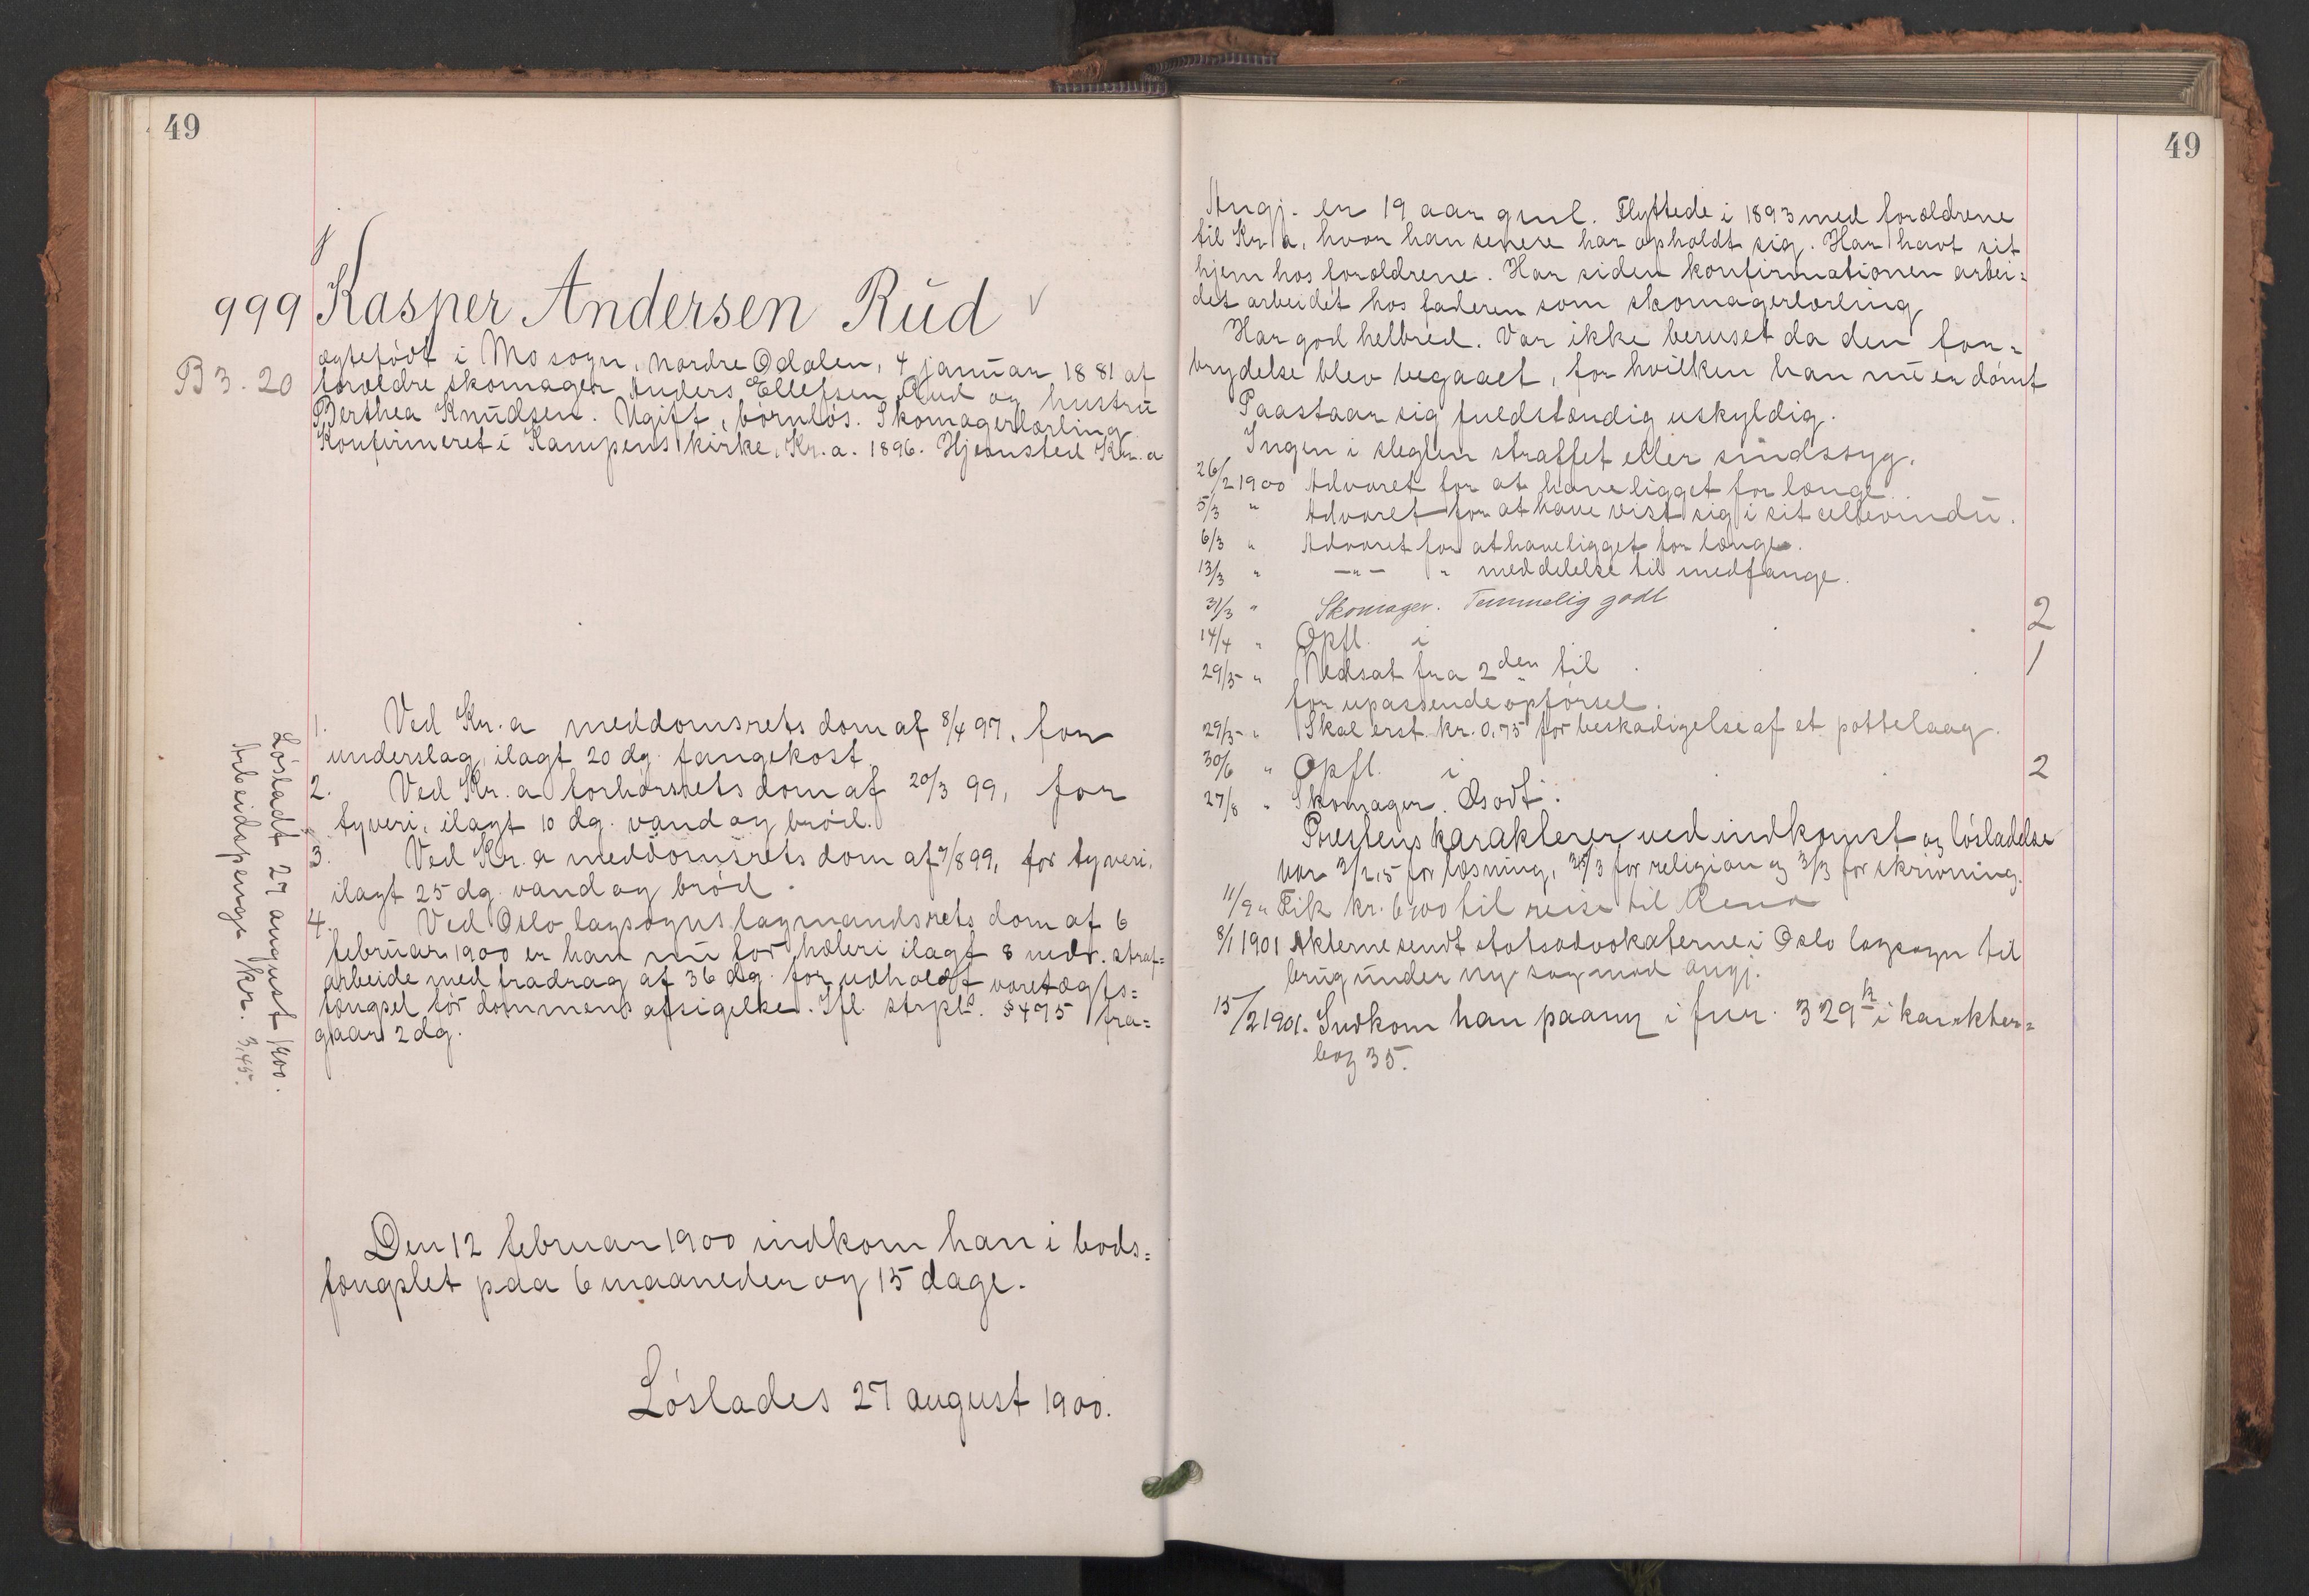 49
999 Kasper Andersen Rud
B 3. 20
ægtefödt i Mo sogn, nordre Odalen, 4 januar 1881 af
forældre skomager Anders Ellefsen Rud og hustru
Berthea Knudsen. Ugift, börnlös. Skomagerlærling.
Konfirmeret i Kampens kirke, Kr.a. 1896. Hjemsted Kr.a
1. Ved Kr.a meddomsrets dom af 8/4 97, for
underslag, ilagt 20 dg. fangekost.
2. Ved Kr.a forhörsrets dom af 20/3 99, for
tyveri, ilagt 10 dg. vand og bröd.
3. Ved Kr.a meddomsrets dom af 7/8 99, for tyveri,
ilagt 25 dg. vand og bröd.
4. Ved Oslo lagsogns lagmandsrets dom af 6
februar 1900 er han nu for hæleri ilagt 8 mdr. straf=
arbeide med fradrag af 36 dg. for udholdt varetægts=
fængsel för dommens afsigelse. Ifl. strpl. § 475 fra=
gaar 2 dg.
Lösladt 27 august 1900.
Arbeidspenge kr. 3,45.
Den 12 februar 1900 indkom han i bods=
fængslet paa 6 maaneder og 15 dage.
Löslades 27 august 1900.
49
Angj. er 19 aar gml. Flyttede i 1893 med forældrene
til Kr.a, hvor han senere har opholdt sig. Har havt sit
hjem hos forældrene. Har siden konfirmationen arbei=
det arbeidet hos faderen som skomagerlærling
Har god helbred. Var ikke beruset da den for=
brydelse blev begaaet, for hvilken han nu er dömt
Paastaar sig fuldstændig uskyldig.
Ingen i slegten straffet eller sindssyg.
26/2 1900 Advaret for at have ligget for længe.
5/3 " Advaret for at have vist sig i sit cellevindu.
6/3 " Advaret for at have ligget for længe.
13/3 " -"- " meddelelse til medfange.
31/3 " Skomager. Temmelig godt
14/4 " Opfl. i 2
29/5 " Nedsat fra 2den til 1
for upassende opförsel.
29/5 " Skal erst. kr. 0,75 for beskadigelse af et pottelaag.
30/6 " Opfl. i 2
27/8 " Skomager. Godt.
Prestens karakterer ved indkomst og lösladelse
var 2/1,5 for læsning, for religion og 3/3 for skrivning.
11/9 " Fik kr. 6,00 til reise til Rena
8/1 1901 Akterne sendt statsadvokaterne i Oslo lagsogn til
brug under ny sag mod angj.
15/2 1901. Indkom han paany i fnr. 329 i karakter=
bog 35.